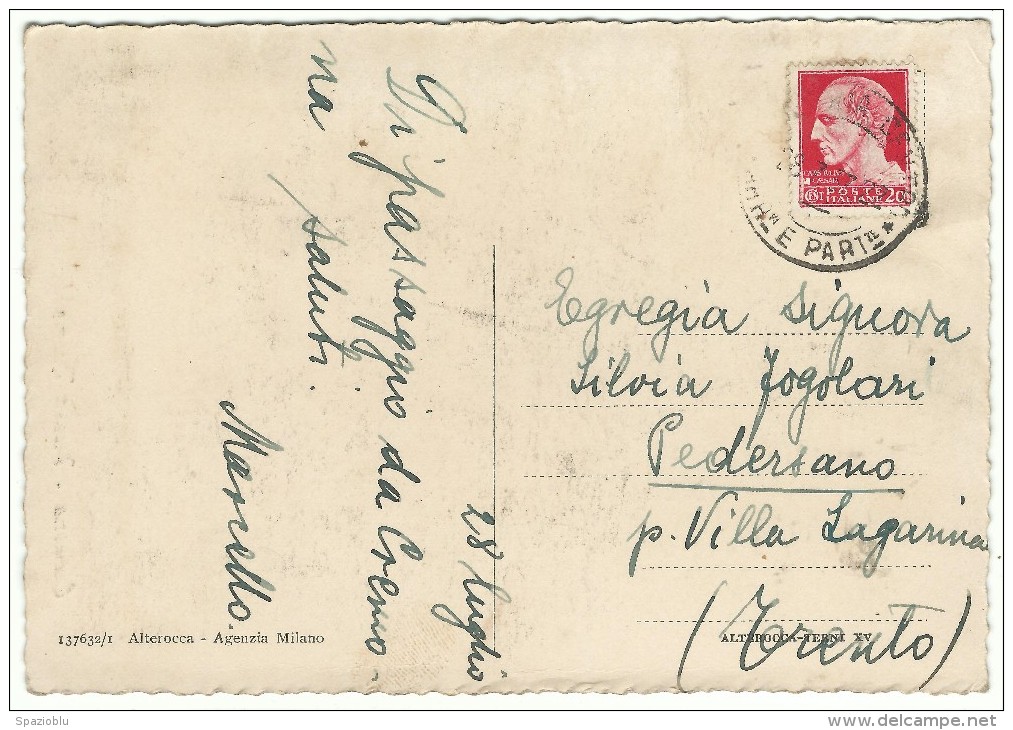 28 luglio
Di passaggio da Cremo-
na saluti.
Marcello.
POSTE
ITALIANE 20
E PARTZE
Egregia Signora
Silvia Fogolari
Pedersano
p. Villa Lagarina
(Trento)
137632/1 Alterocca - Agenzia Milano
ALTEROCCA-TERNI XV
Spazioblu
delcampe.net